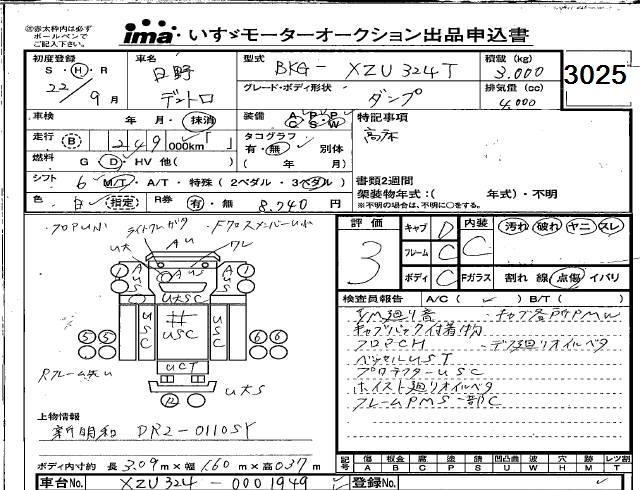 ※赤太枠内は必ず
ボールペンで
ご記入下さい。
ima・いすゞモーターオークション出品申込書
初度登録
S・H・R
22年9月
車名
日野
デュトロ
型式
BKG- XZU324T
積載(kg)
3.000
3025
グレード・ボディ形状
ダンプ
排気量(cc)
4,000
車検 年・月・抹消
装備 A P P
C S W
特記事項
高床
走行 B 249,000km
タコグラフ
有・無 別体
( 年 月)
燃料 G D・HV 他( )
シフト 6 M/T・A/T・特殊(2ペダル・3ペダル)
書類2週間
架装物年式:( 年式)・不明
※不明の場合は、不明に○をする。
色 白 指定
R券 有・無 8.740円
評価
3
キャブ D
フレーム C
ボディ C
内装 C
汚れ 破れ ヤニ スレ
Fガラス 割れ 線 点傷 イバリ
検査員報告 A/C( ) B/T( )
キャブバック付着物
フロアCH
ベッセルUST
プロテクターUSC
ホイスト廻りオイルベタ
フレームPMS一部C
デフ廻りオイルベタ
AU
U大
ワレ
AUS
U大SC
USC
USC
USC
UCT
U大S
1
1
5 5
6 6
12
上物情報
新明和 DR2-0110SY
ボディ内寸約 長3.09m×幅1.60m×高0.37m
記号 傷A 板金B 腐C 塗P 錆S 請H 凹凸曲U 波W 穴H 跡M レツ割T
車台No. XZU324-0001949
登録No.